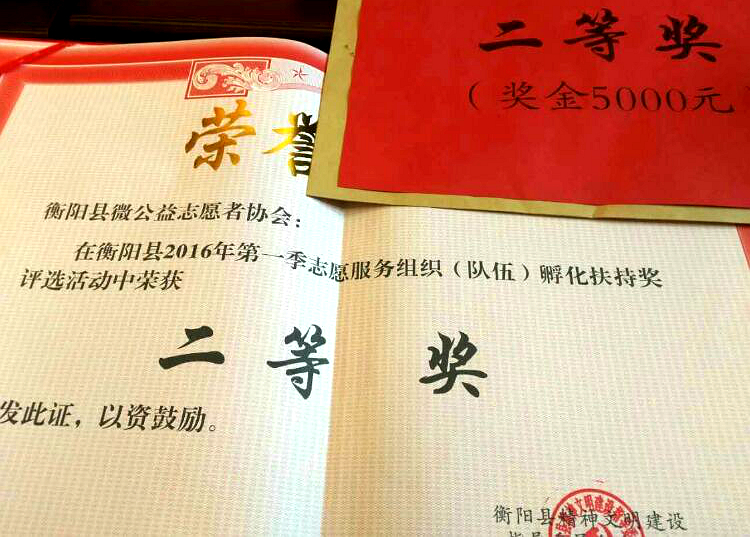 二等奖
（奖金5000元
荣誉
衡阳县微公益志愿者协会：
在衡阳县2016年第一季志愿服务组织（队伍）孵化扶持奖
评选活动中荣获
二等奖
发此证，以资鼓励。
衡阳县精神文明建设